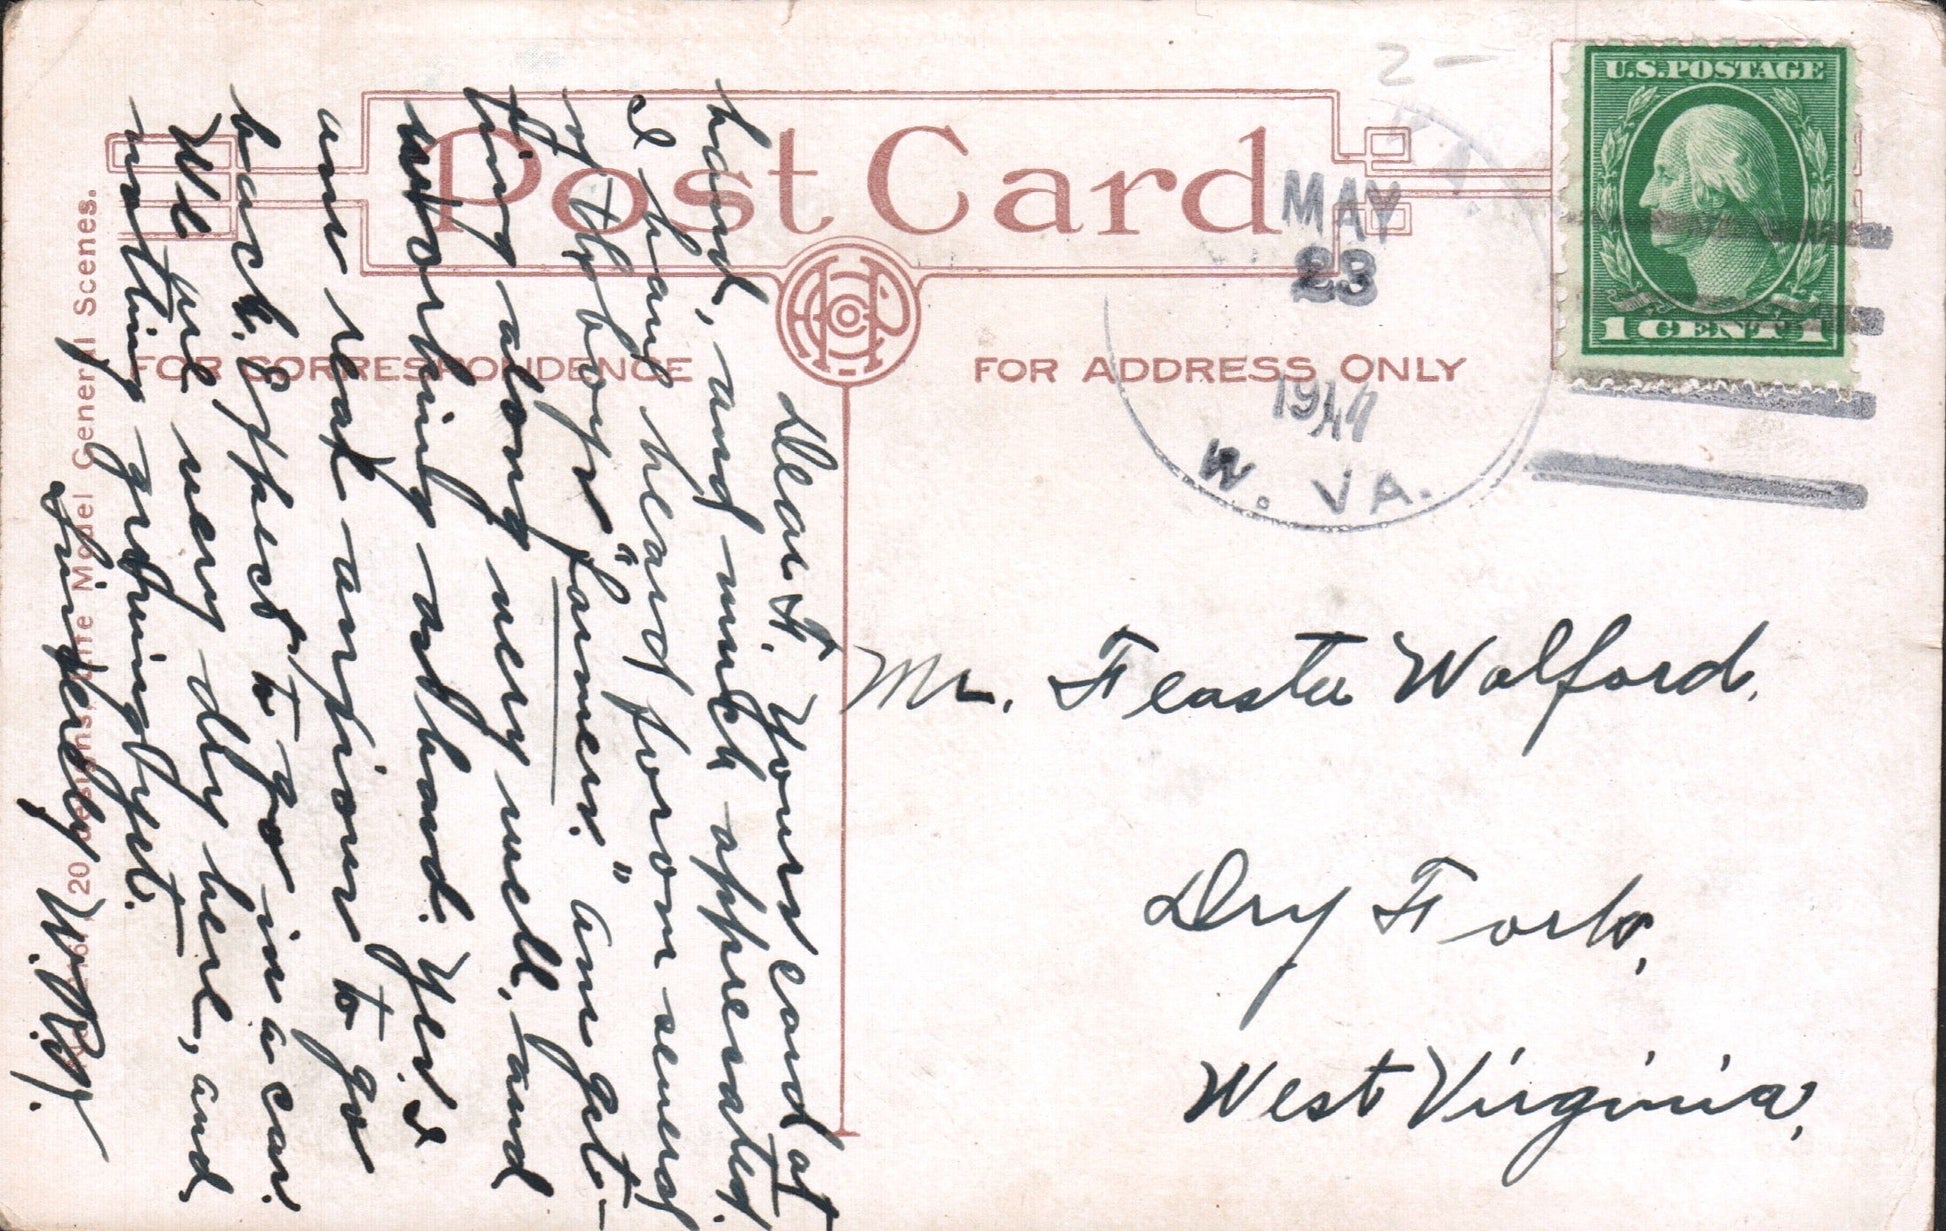 Post Card
FOR CORRESPONDENCE
FOR ADDRESS ONLY
U.S. POSTAGE
1 CENT 1
MAY
23
19
W. VA.
Dear F. Yours card at
hand, and much appreciated.
I have heard from several
of the boys "farmers." am get-
ting along very well, and
working ad hand. Yes I
am real anxious to go
back. Expect to go in a car.
We are very dry here, and
nothing growing yet.
Sincerely
Mr. Feaster Wolford.
Dry Fork,
West Virginia,
20 designs, White Model General Scenes.